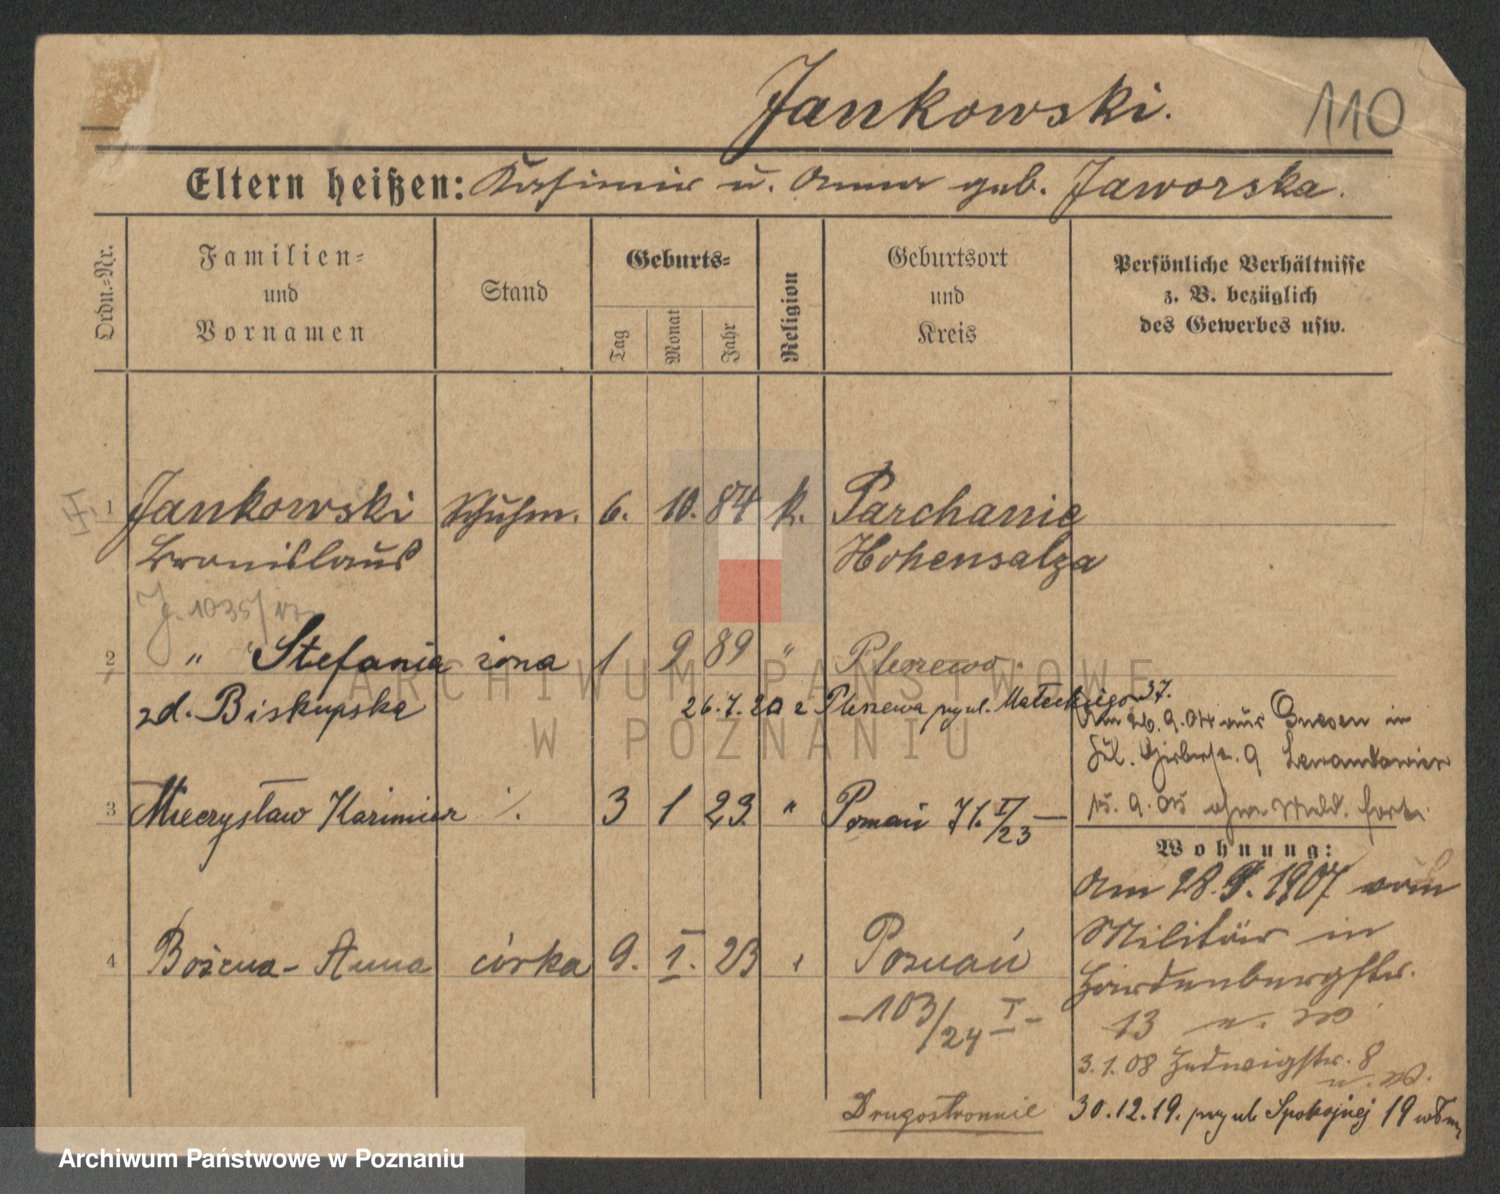 Jankowski.
110
Eltern heißen: Kasimir u. Anna geb. Jaworska.
Ordn.-Nr.
Familien-
und
Vornamen
Stand
Geburts-
Tag
Monat
Jahr
Religion
Geburtsort
und
Kreis
Persönliche Verhältnisse
z. B. bezüglich
des Gewerbes usw.
1 Jankowski Schuhm. 6. 10. 84 k. Parchanie
Bronislaus Hohensalza
J. 1035/
2 " Stefania żona 1 9 89 " Pleszewo.
zd. Biskupska 26.7.20 z Pleszewa przy ul. Małeckiego 37.
Am 26.9.04 aus Gnesen in
9 Lewandowski
15.9.05 ohne Meld. fort.
3 Mieczysław Kazimierz ·/. 3 1 23 " Poznań 71. I/23 —
Wohnung:
Am 28.9.1907 vom
Militär in
Hardenbergstr.
13
4 Bożena-Anna córka 9. I. 23 Poznań
-103/24 I-
3.1.08 Hedwigstr. 8
Drugostronnie
30.12.19. przy ul. Spokojnej 19
ARCHIWUM PAŃSTWOWE
W POZNANIU
Archiwum Państwowe w Poznaniu